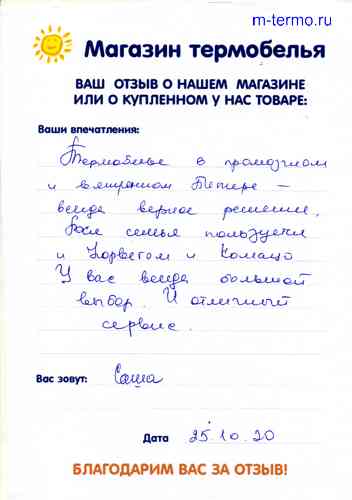 m-termo.ru
Магазин термобелья
ВАШ ОТЗЫВ О НАШЕМ МАГАЗИНЕ
ИЛИ О КУПЛЕННОМ У НАС ТОВАРЕ:
Ваши впечатления:
Термобелье в промозглом
и ветренном Питере –
всегда верное решение.
Вся семья пользуется
и Норвегом и Комацо
У вас всегда большой
выбор. И отличный
сервис.
Вас зовут: Саша
Дата 25.10.20
БЛАГОДАРИМ ВАС ЗА ОТЗЫВ!